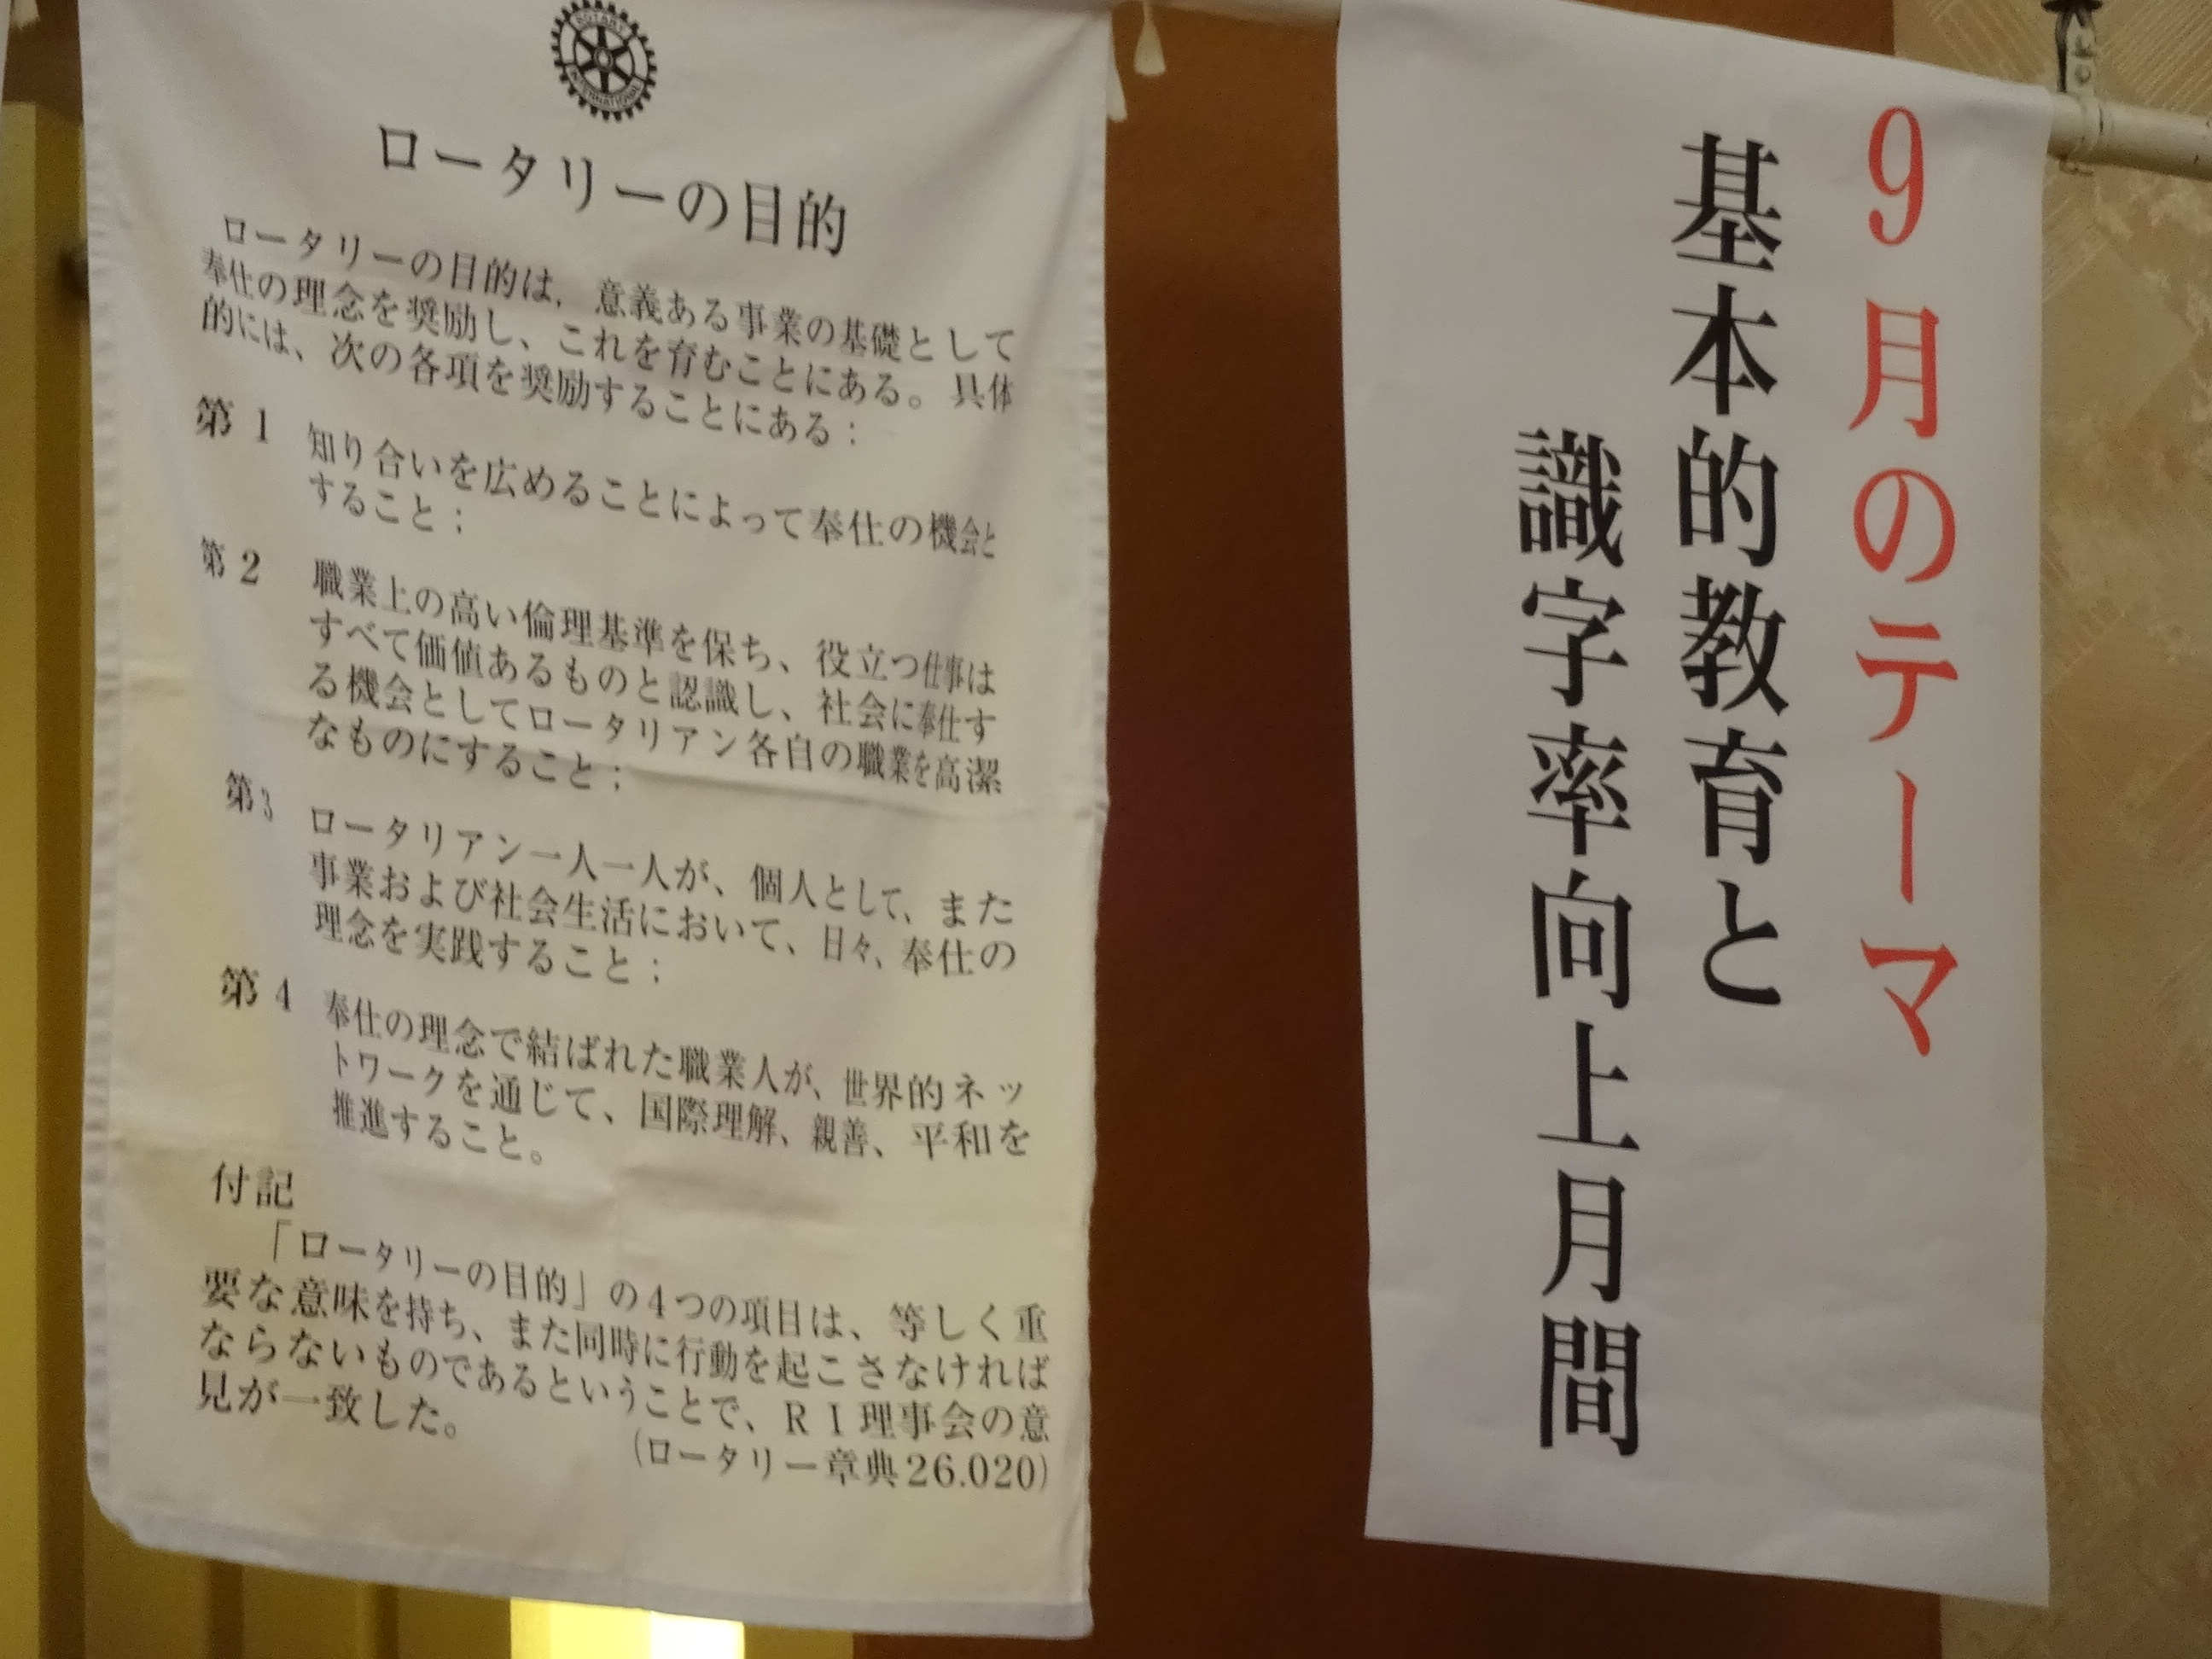 ROTARY
INTERNATIONAL
ロータリーの目的
ロータリーの目的は，意義ある事業の基礎として
奉仕の理念を奨励し、これを育むことにある。具体
的には、次の各項を奨励することにある：
第1 知り合いを広めることによって奉仕の機会と
すること；
第2 職業上の高い倫理基準を保ち、役立つ仕事は
すべて価値あるものと認識し、社会に奉仕す
る機会としてロータリアン各自の職業を高潔
なものにすること；
第3 ロータリアン一人一人が、個人として、また
事業および社会生活において、日々、奉仕の
理念を実践すること；
第4 奉仕の理念で結ばれた職業人が、世界的ネッ
トワークを通じて、国際理解、親善、平和を
推進すること。
付記
「ロータリーの目的」の4つの項目は、等しく重
要な意味を持ち、また同時に行動を起こさなければ
ならないものであるということで、ＲＩ理事会の意
見が一致した。
(ロータリー章典26.020)
9月のテーマ
基本的教育と
識字率向上月間